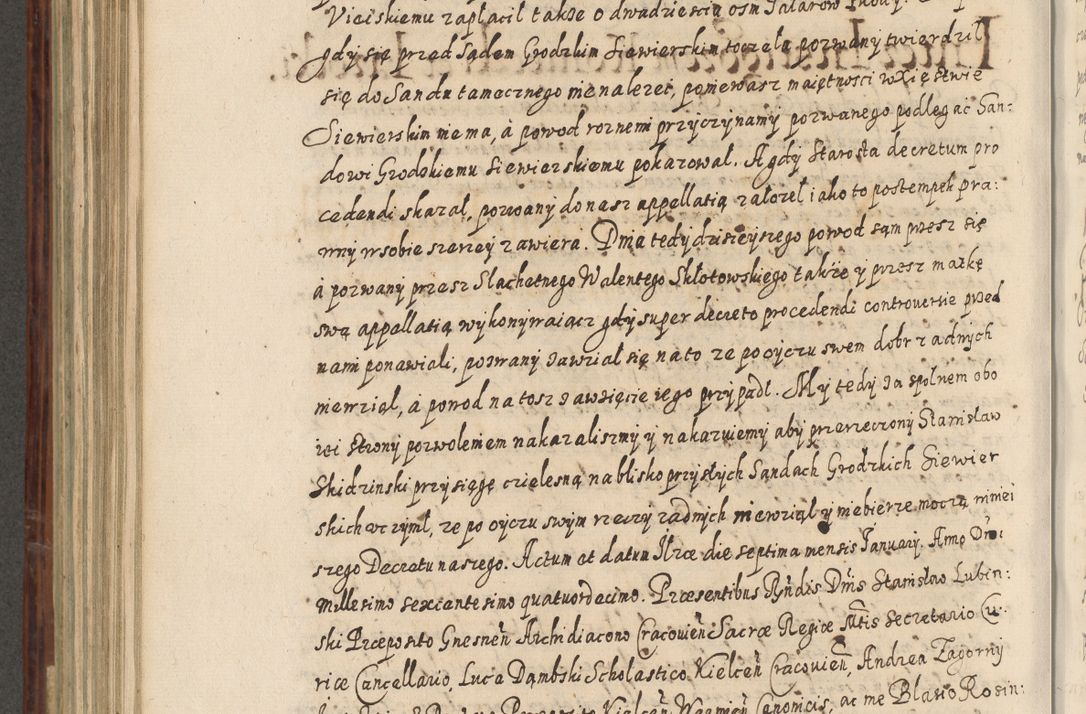 Viciskiemu zapłacił także o dwadziescia osm Talarow
gdy się przed Sądem Grodzkim Siewierskim toczeła pozwany twierdził
się do Sandu tamecznego nie nalezec, poniewasz maiętnosci w Xięstwie
Siewierskim niema, á powod roznemi przyczynamy pozwanego podlegac San:
dowi Grodzkiemu Siewierskiemu pokazowal. A gdy Starosta decretum pro
cedendi skazal, pozwany do nasz appellatią założeł iako to postempek pra:
wny w sobie szerzey zawiera. Dnia tedy dzisieyszego powod sąm przesz się
á pozwany przesz Slachetnego Walentego Skłotowskiego także y przesz matkę
swą appellatią wykonywaiącz gdy super decreto procedendi controversie przed
nami ponawiali, pozwany zawział się na to ze po oyczu swem dobr zadnych
niewziął, á powod na tosz zawzięcie iego przypadl. My tedy za spolnem obo
iei strony pozwoleniem nakazalismy y nakazuiemy aby przerzeczony Stanisław
Skidzinski przysięgę czielesną na blisko przyszlych Sandach Grodzkich Siewier
skich uczynił, ze po oyczu swym rzeczy zadnych niewziął y niebierze mocza nìniei
szego Decretu naszego. Actum et datum Ilzce die septima mensis January. Anno Dni
Millesimo sexcentesimo quatuordecimo. Præsentibus Rndis Dnis Stanislao Lubin:
ski Præposito Gnesnen Archidiacono Cracovien Sacræ Regiæ Mtis Secretario Cu:
riæ Cancellario, Luca Dąmbski Scholastico Kielcen Cracovien, Andrea Zagorny
Præposito Kielcen Warmien Canonicis, ac me Blasio Rosin: